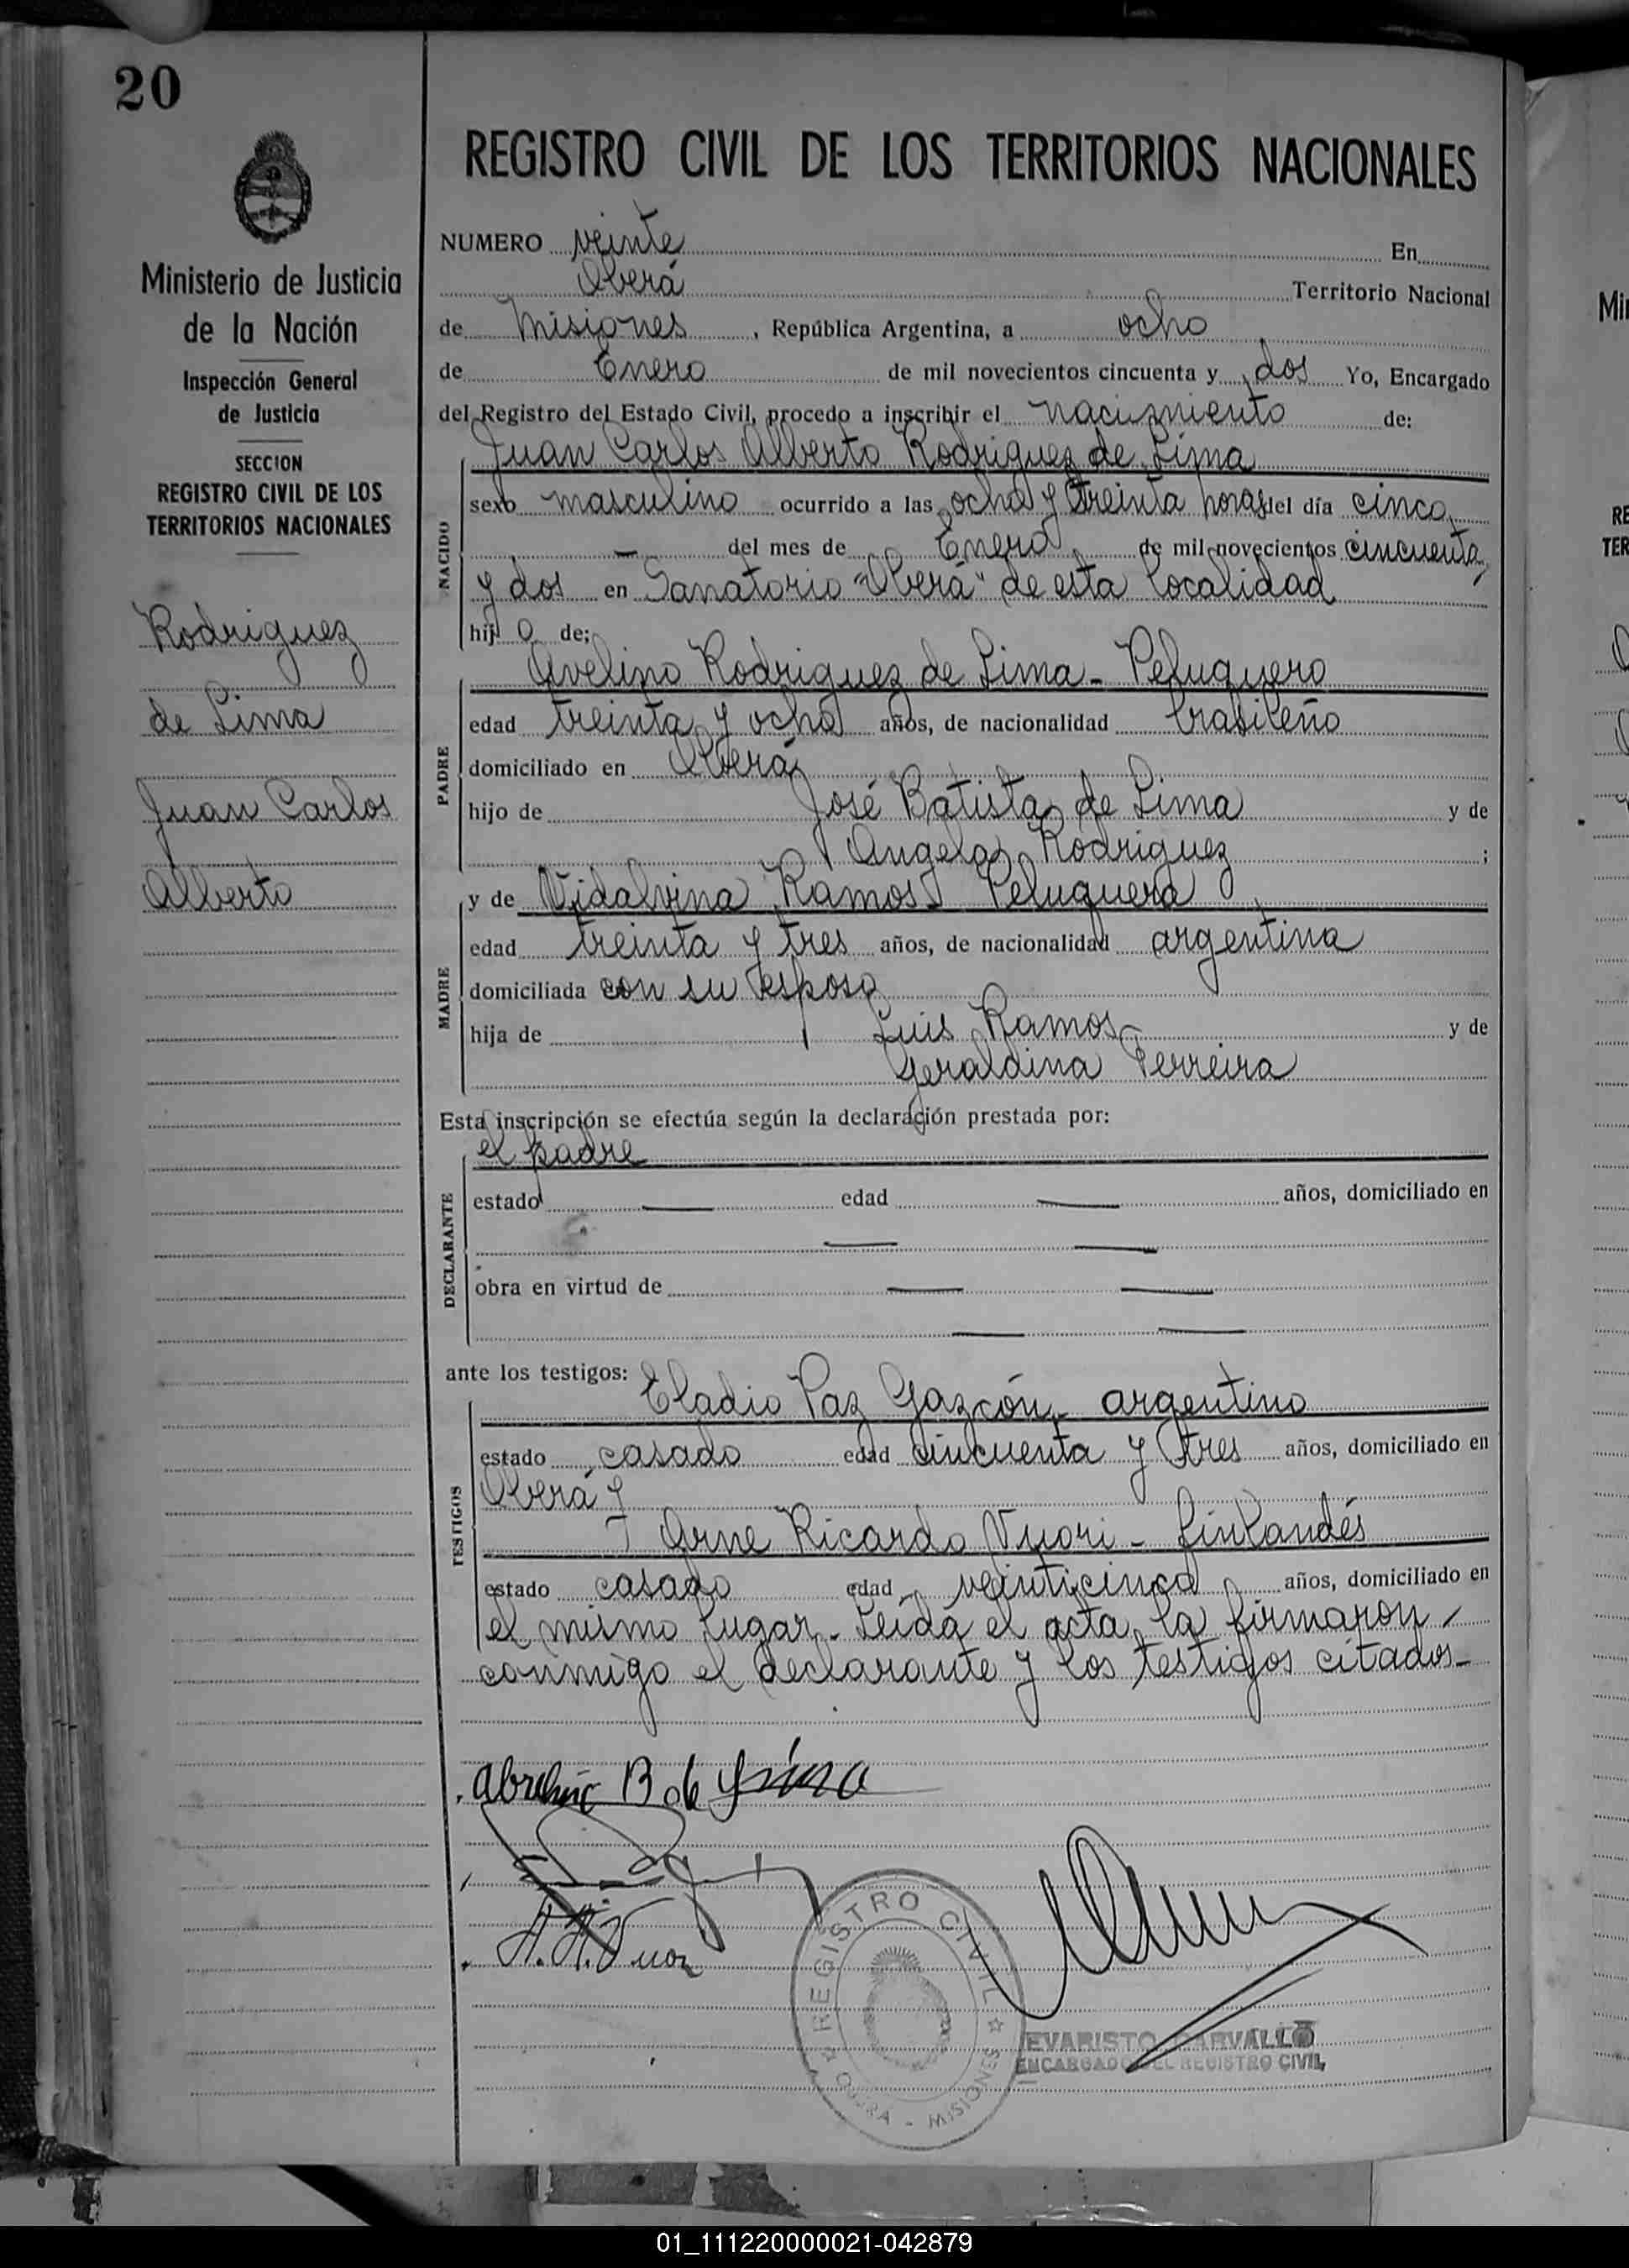 20
REGISTRO CIVIL DE LOS TERRITORIOS NACIONALES
Ministerio de Justicia
de la Nación
Inspección General
de Justicia
SECCION
REGISTRO CIVIL DE LOS
TERRITORIOS NACIONALES
Rodriguez
de Lima
Juan Carlos
Alberto
NUMERO veinte En
Oberá Territorio Nacional
de Misiones, República Argentina, a ocho
de Enero de mil novecientos cincuenta y dos Yo, Encargado
del Registro del Estado Civil, procedo a inscribir el nacimiento de:
Juan Carlos Alberto Rodriguez de Lima
NACIDO
sexo masculino ocurrido a las ocho y treinta horas del día cinco
— del mes de Enero de mil novecientos cincuenta
y dos en Sanatorio "Oberá" de esta localidad
hijo de:
Avelino Rodriguez de Lima - Peluquero
PADRE
edad treinta y ocho años, de nacionalidad brasileño
domiciliado en Oberá
hijo de José Batista de Lima y de
Angela Rodriguez ;
y de Vidalvina Ramos - Peluquera
MADRE
edad treinta y tres años, de nacionalidad argentina
domiciliada con su esposo
hija de Luis Ramos y de
Geraldina Ferreira
Esta inscripción se efectúa según la declaración prestada por:
el padre
DECLARANTE
estado — edad — años, domiciliado en
— —
obra en virtud de — —
— —
ante los testigos:
Eladio Paz Gazcón - argentino
TESTIGOS
estado casado edad cincuenta y tres años, domiciliado en
Oberá y
Arne Ricardo Vuori - finlandés
estado casado edad veinticinco años, domiciliado en
el mismo lugar - Leida el acta, la firmaron
conmigo el declarante y los testigos citados -
B de Lima
REGISTRO CIVIL
OBERA - MISIONES
EVARISTO CARVALLO
ENCARGADO DEL REGISTRO CIVIL
Mi
RE
TER
01_111220000021-042879